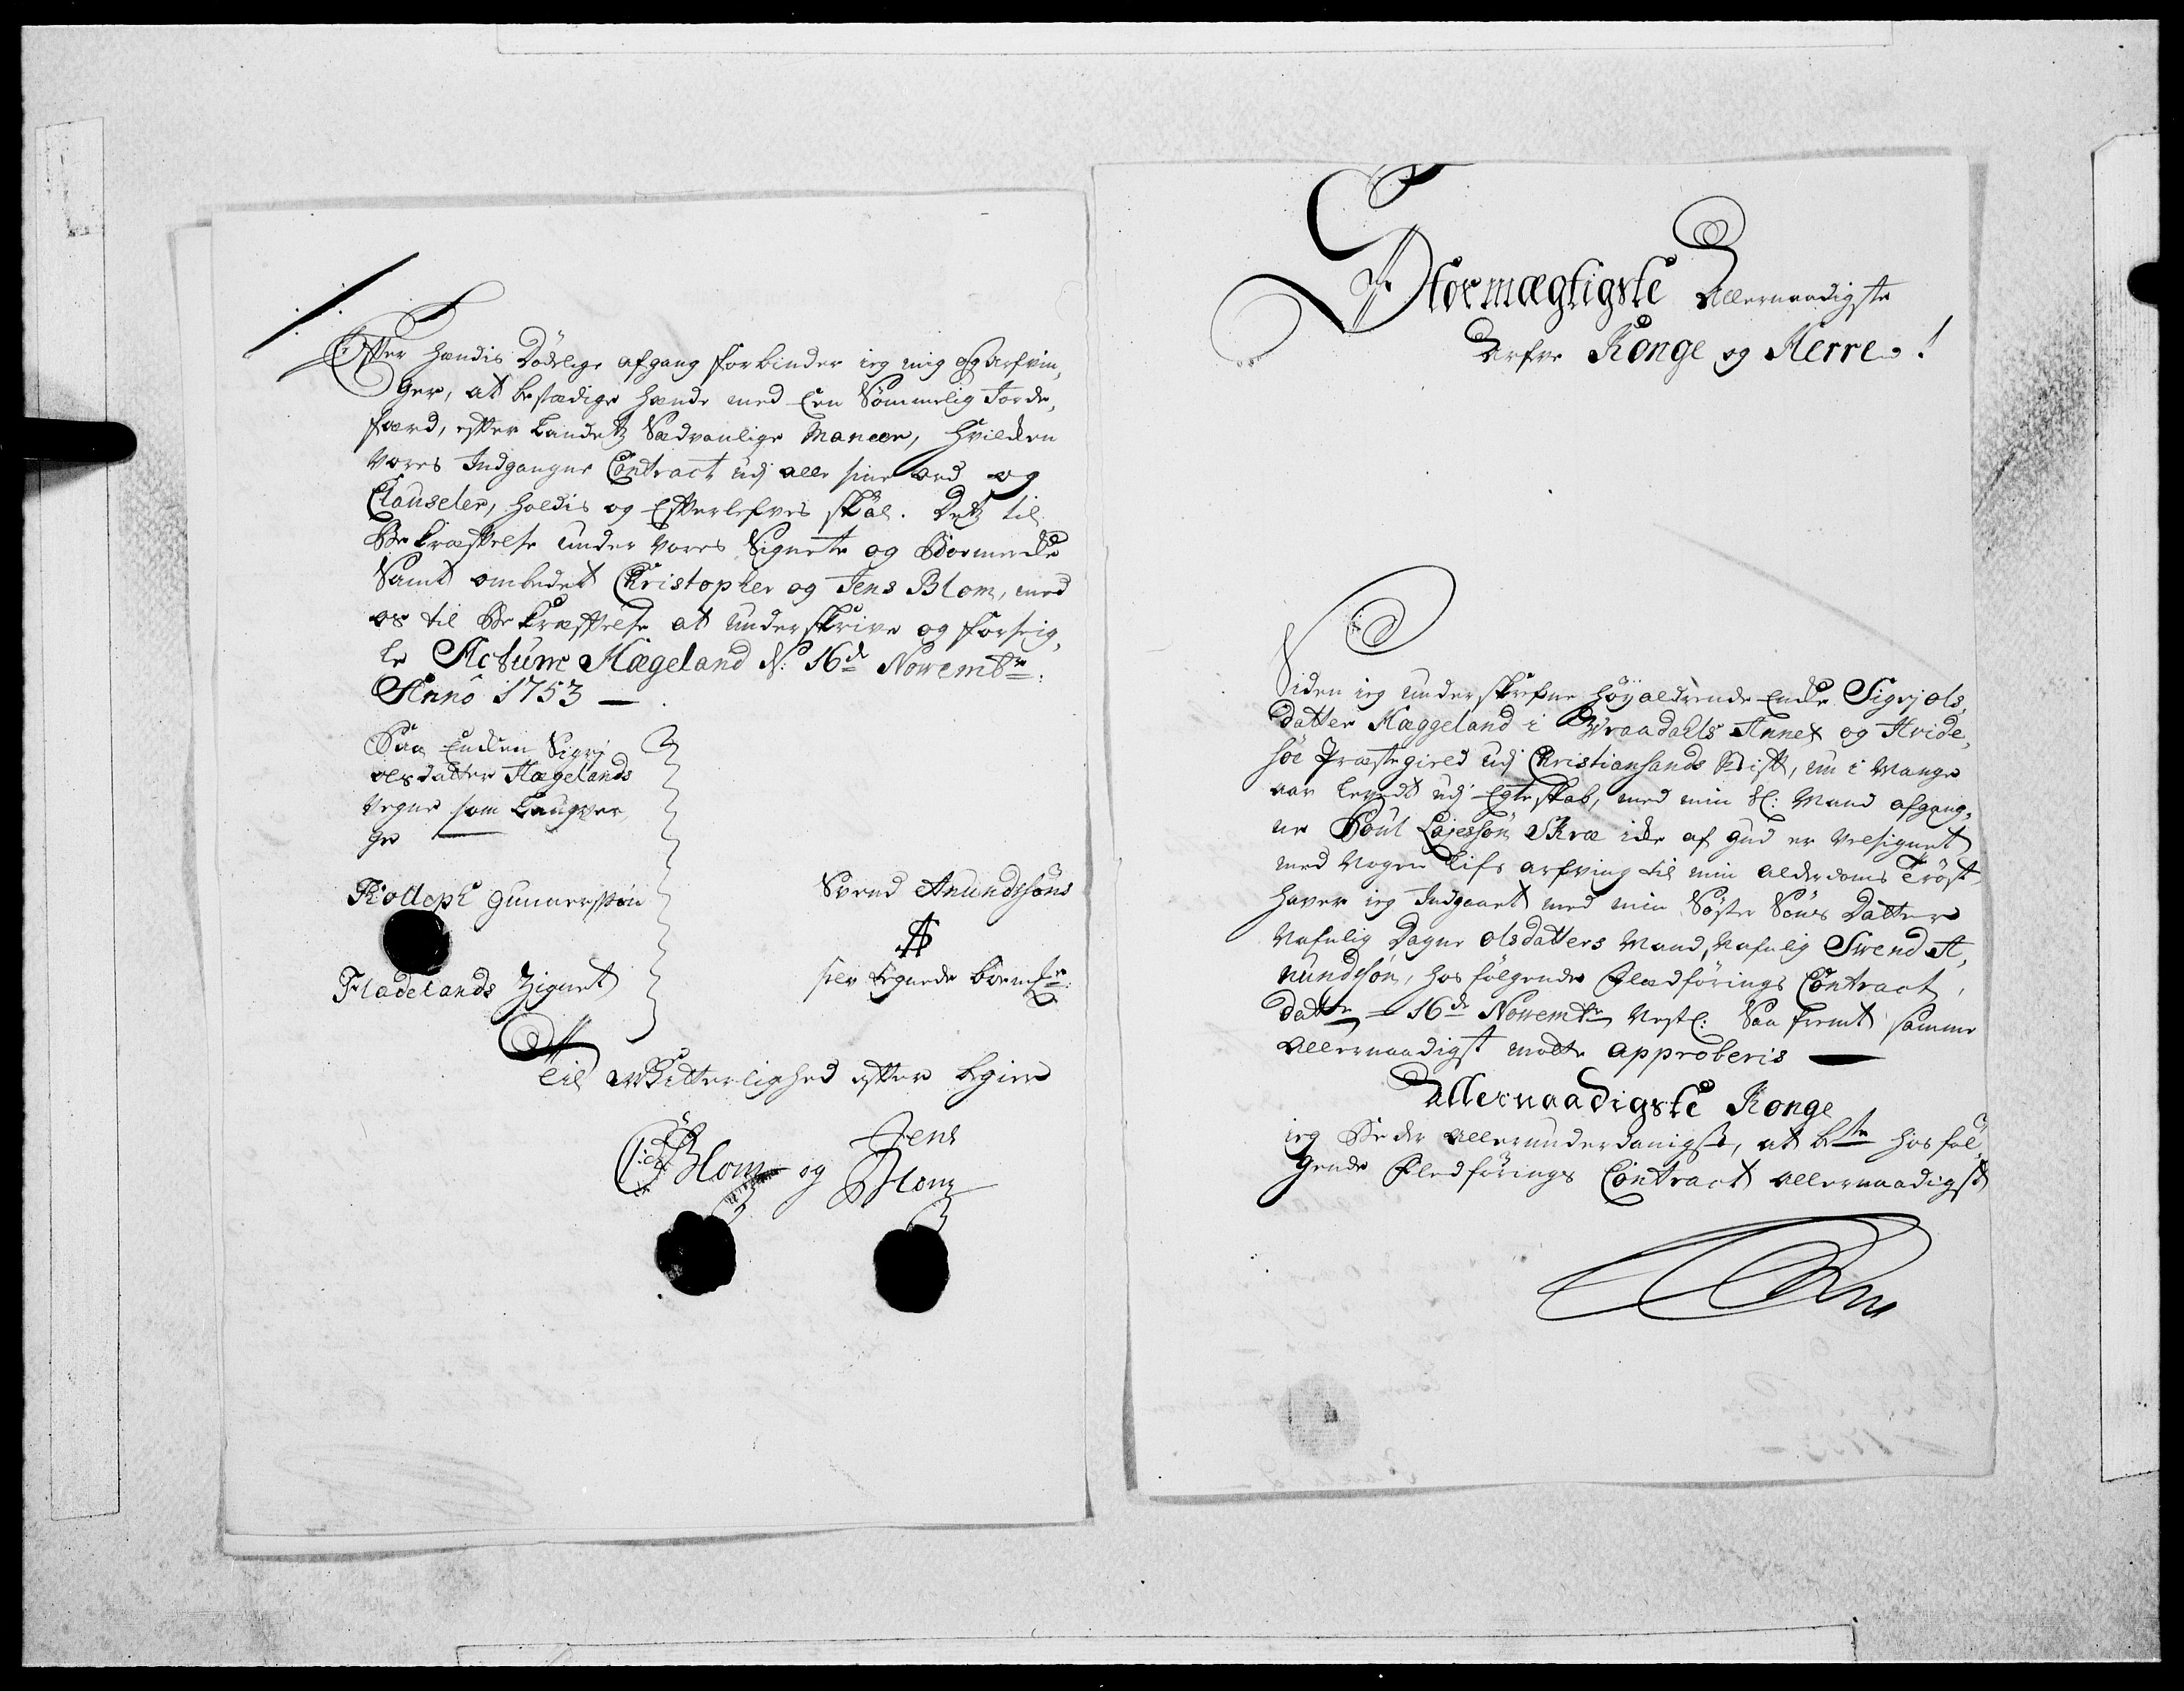 Efter Hendis Dödelige afgang forbinder ieg mig og Arfvin,
ger, at bestædige Hende med een Sömmelig Jorde,
færd, efter Landetz Sædvanlige Maneer, Hvilcken
Vores Indgangne Contract udj alle sine ord og
Clauseler, holdis og Efterlefves skal. Dets til
Bekræftelse under vores Signete og Boemerke
Samt ombedet Christopher og Jens Blom, med
os til Bekræftelse at underskrive og forseig,
le Actum Hægeland d: 16de Novembr:
Anno 1753 —
Paa Encken Sigri
olsdatter Hægelands
Vegne som Laugver,
ge —
Rollep Gunnerssön
Fladelands Zignet
Svend Anundssöns
A
selv tegnede boemke:
Til Witterlighed efter begier
C: Blom og Jens
Blom
Stormægtigste Allernaadigste
Arfve Konge og Herre!
Siden ieg underskrefne höyaldrende Encke Sigrj ols,
datter Hæggeland i Wraadahls Annex og Hvide,
söe Præstegield udj Christiansands Stift, nu i Mange
aar levedt udj Egteskab, med min Sl: Mand afgang,
ne Poul Lajessön Skræ icke af Gud er velsignet
med Nogen Lifs arfving til min alderdoms Tröst
haver ieg Indgaaet med min Söster Söns Datter
Nafnlig Dagne olsdatters Mand, Nafnlig Swend A,
nundssön, hos fölgende Fledförings Contract,
datr 16de Novembr Nestl: Saa fremt samme
Allernaadigst motte approberis —
Allernaadigste Konge
ieg Beder allerunderdanigst, at bte hos föl,
gende Fledförings Contract allernaadigst